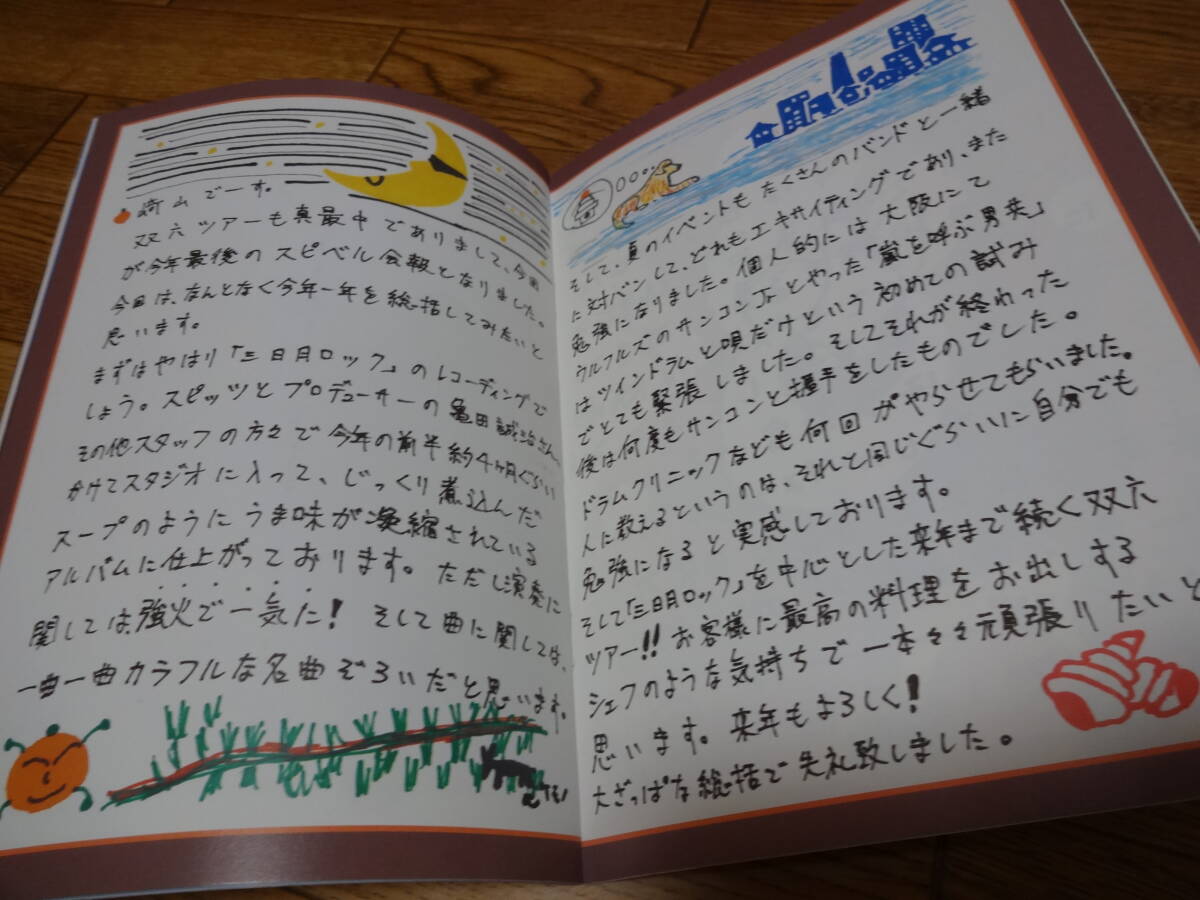 﨑山でーす。
双六ツアーも真最中でありまして、今回
が今年最後のスピベル会報となりました。
今回は、なんとなく今年一年を総括してみたいと
思います。
まずはやはり「三日月ロック」のレコーディングで
しょう。スピッツとプロデューサーの亀田誠治さん、
その他スタッフの方々で今年の前半約4ヶ月ぐらい
かけてスタジオに入って、じっくり煮込んだ
スープのようにうま味が凝縮されている
アルバムに仕上がっております。ただし演奏に
関しては強火で一気に!そして曲に関しては、
一曲一曲カラフルな名曲ぞろいだと思います。
そして、夏のイベントもたくさんのバンドと一緒
に対バンして、どれもエキサイティングであり、また
勉強になりました。個人的には大阪にて
ウルフルズのサンコンJrとやった「嵐を呼ぶ男共」
はツインドラムと唄だけという初めての試み
でとても緊張しました。そしてそれが終わった
後は何度もサンコンと握手をしたものでした。
ドラムクリニックなども何回がやらせてもらいました。
人に教えるというのは、それと同じぐらいに自分でも
勉強になると実感しております。
そして「三日月ロック」を中心とした来年まで続く双六
ツアー!!お客様に最高の料理をお出しする
シェフのような気持ちで一本々々頑張りたいと
思います。来年もよろしく!
大ざっぱな総括で失礼致しました。